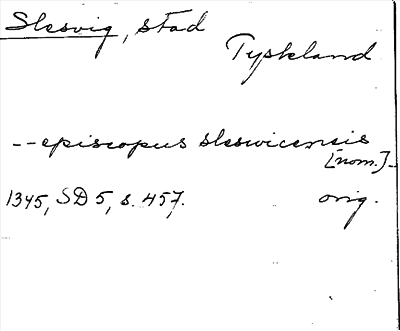 Slesvig, stad
Tyskland
-- episcopus sleswicensis
[nom.] --
1345, SD 5, s. 457.
orig.